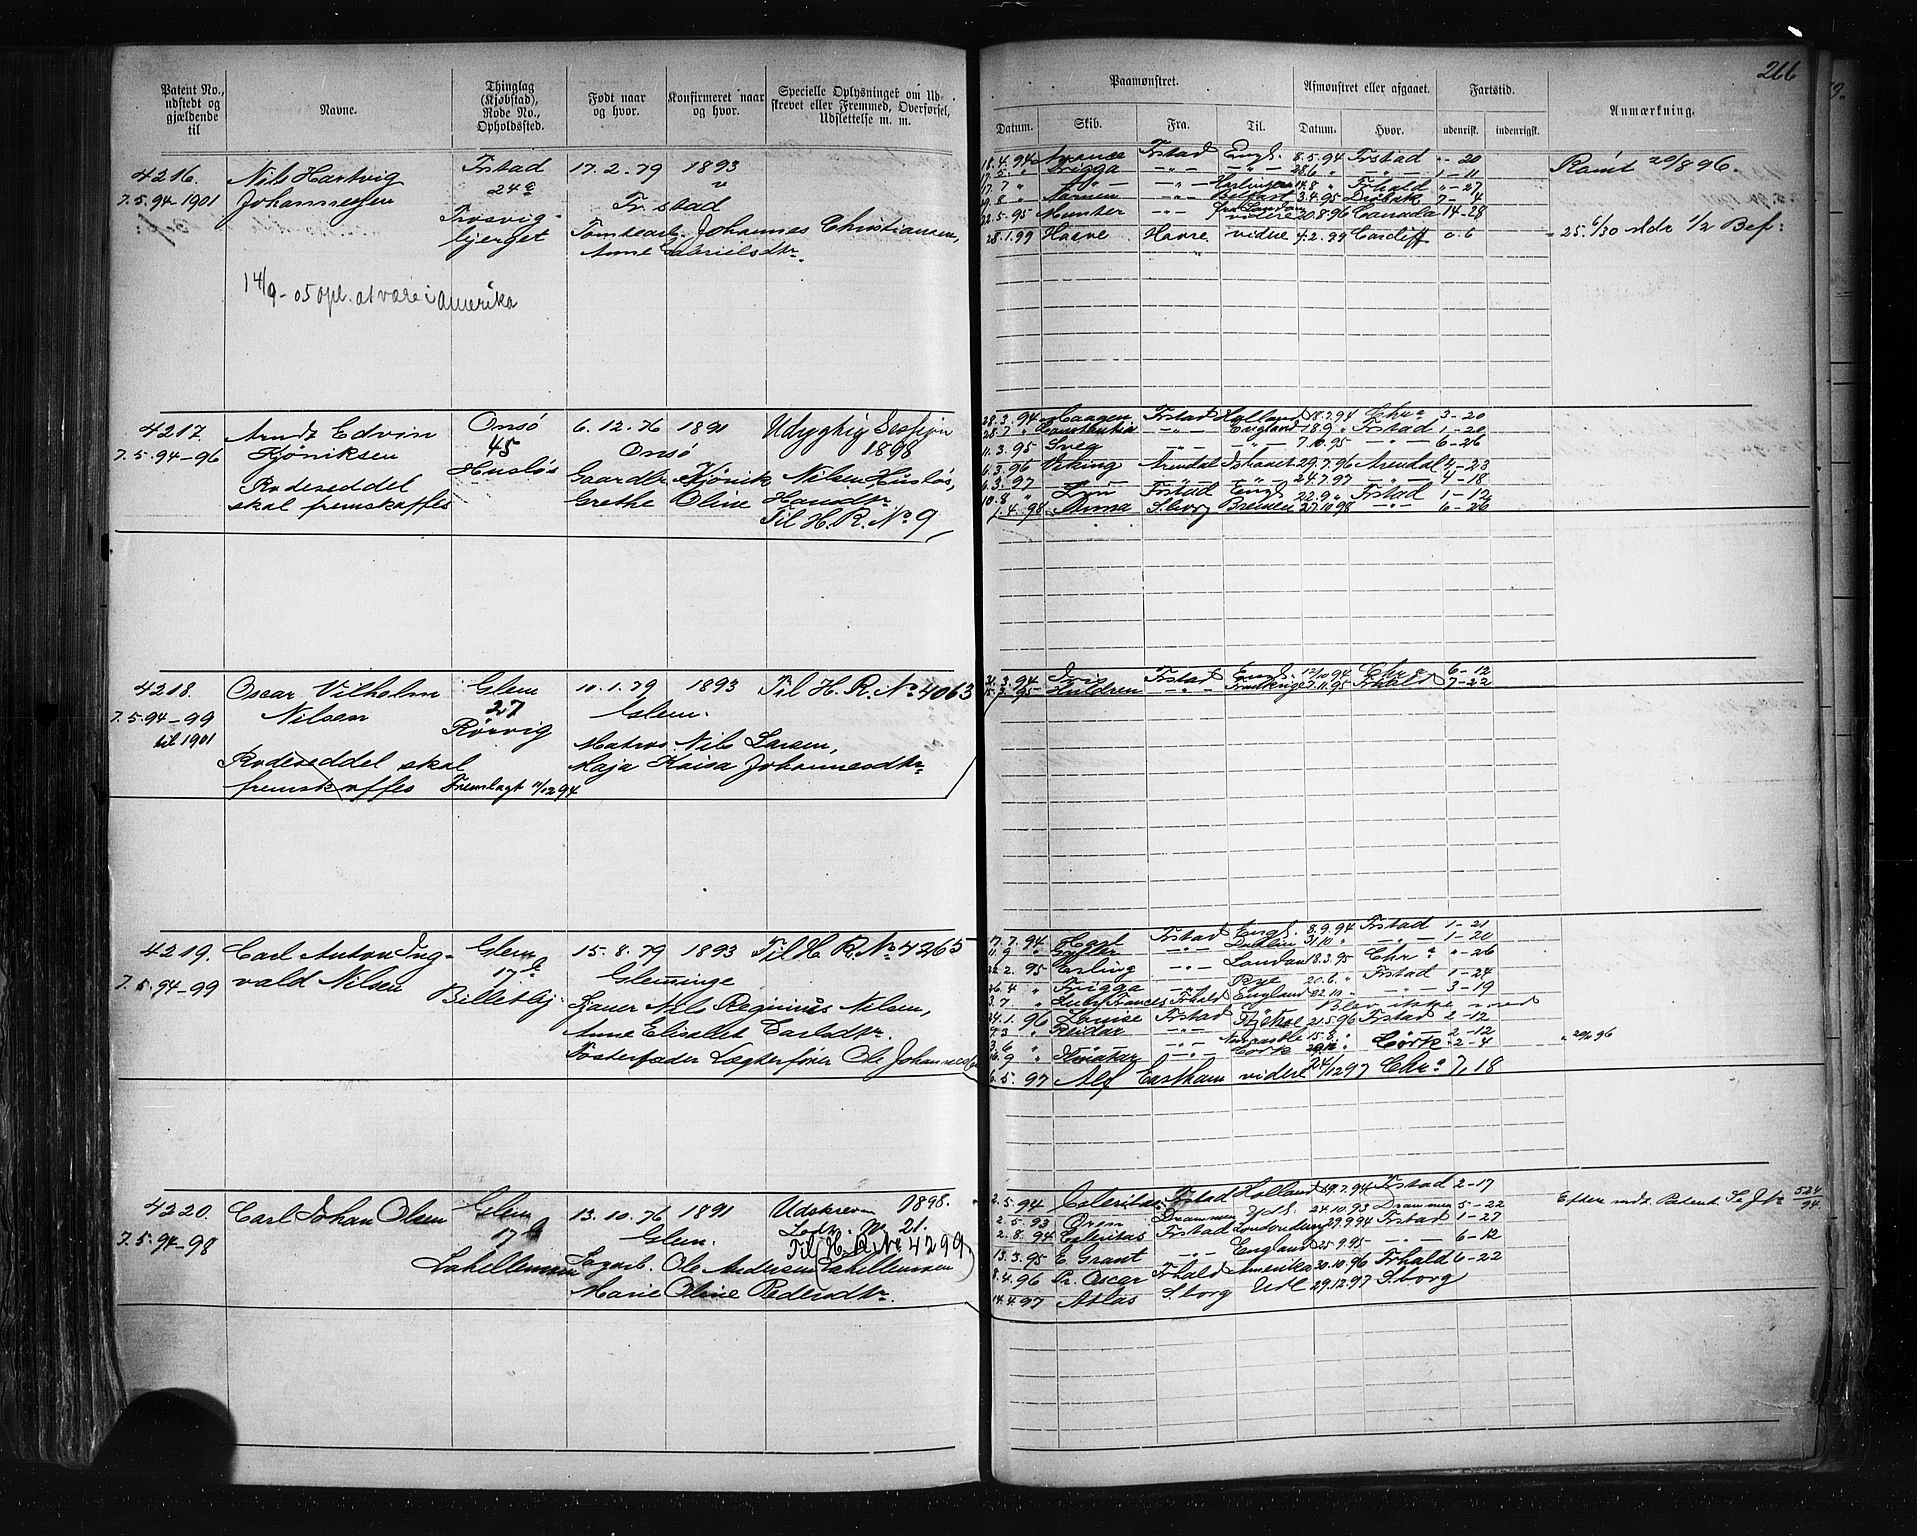 266
Patent No., udstedt og gjældende til
Navne.
Thinglag (Kjøbstad), Rode No., Opholdssted.
Født naar og hvor.
Konfirmeret naar og hvor.
Specielle Oplysninger om Udskrevet eller Fremmed, Overførsel, Udslettelse m. m.
Paamønstret.
Afmønstret eller afgaaet.
Fartstid.
Anmærkning.
Datum. Skib. Fra. Til. Datum. Hvor. udenrigsk. indenrigsk.
4216. Nils Hartvig Frstad 17.2.79 1893
7.5.94-1901 Johannessen 24a Fr.stad
Trosvig-
bjerget
Tomtearb. Johannes Christiansen,
Anne Gabrielsdtr.
14/9-05 opl. at være i Amerika
18.4.94 Avance Frstad Engl. 8.5.94 Frstad "-20
17.5. " Frigga -"- -"- 28.6 " -"- 1-11
17.7 " -"- -"- Harlingen 14.8 " Frhald "-27
29.8 " Belfast 3.4.95 Drøbak 7-4
22.5.95 Munster -"- videre 20.8.96 Canada 14-28
28.1.99 Havre videre 4.2.99 Cardiff 0.6
Rømt 20/8 96
25. 6/30 Mdr 1/2 Bef:
4217. Arndt Edvin Onsø 6.12.76 1891 Udygtig Session
7.5.94-96 Kjøniksen 45 Onsø 1898
Husløs
Rodeseddel
skal fremskaffes
Gaardbr. Kjønik Nilsen, Husløs,
Grethe Oline Hansdtr.
Til H. R. No 9
28.3.94 Haagen Frstad Holland 18.7.94 Chra 3-20
28.7 " Constantia -"- England 18.9 " Frstad 1-20
11.3.95 Sveg -"- -"- 7.10.95 -"- 6-26
6.3.96 Viking Arendal Ishavet 29.7.96 Arendal 4-23
6.3.97 " -"- -"- 24.7.97 -"- 4-18
10.8 " Frstad Engl. 22.9 " Frstad 1-12
1.4.98 Anna S.borg 27.10.98 -"- 6-26
4218. Oscar Vilhelm Glem 10.1.79 1893 Til H. R. No 4063
7.5.94-99 Nilsen 27 Glem.
til 1901 Rørvig
Matros Nils Larsen,
Maja Kaisa Johannesdtr.
Rodeseddel skal
fremskaffes Fremlagt 11/12 94
21.3.94 Iris Frstad Engl. 12/10 94 Chra 6-12
15.3.95 Huldren -"- Frankrige 7.11.95 Frhald 7-22
4219. Carl Anton Ing- Glem 15.8.79 1893 Til H R. No 4265
7.5.94-99 vald Nilsen 17b Glemminge
Billetbg.
Gauer Nils Reginius Nilsen,
Anne Elisabet Carlsdtr.
Fosterfader Lægterfører Ole Johannessen
17.7.94 Harl Frstad Engl. 8.9.94 Frstad 1-21
11.9 " -"- Dublin 31.10 " -"- 1-20
22.2.95 Erling -"- London 18.3.95 Chra "-26
26.4 " Frigga Rye 20.6 " Frstad 1-24
3.7 " Lucy Frances Frhald England 22.10 " -"- 3-19
24.1.96 Louise Frstad Blev ikke med
7.3 " Reidar -"- 21.5.96 Frstad 2-12
3.6 " -"- Newcastle 15.8. " 2-12
16.9 " -"- Cork Cork 2-4
6.5.97 Alf Eastham videre 24/12 97 Chra 7.18
4220. Carl Johan Olsen Glem 13.10.76 1891 Udskreven 1898.
7.5.94-98 17b Glem. Lodtr. No 21.
Til H. R. No 4299
Lahellemoen Sagarb. Ole Andersen (Lahellemoen)
Marie Oline Pedersdtr.
2.5.94 Celeritas Frstad Holland 19.7.94 Frstad 2-17
2.5.93 Ørnen Drammen 24.10.93 Drammen 5-22
2.8.94 Celeritas Frstad Londonderry 29.9.94 Frstad 1-27
13.3.95 E. Grant -"- England 25.9.95 -"- 6-12
8.4.96 Pr. Oscar Frhald Amerika 30.10.96 Frhald 6-22
14.4.97 Atlas S.borg Udl 29.12.97 S.borg
Efter indt. Patent. Se J.No 524/94